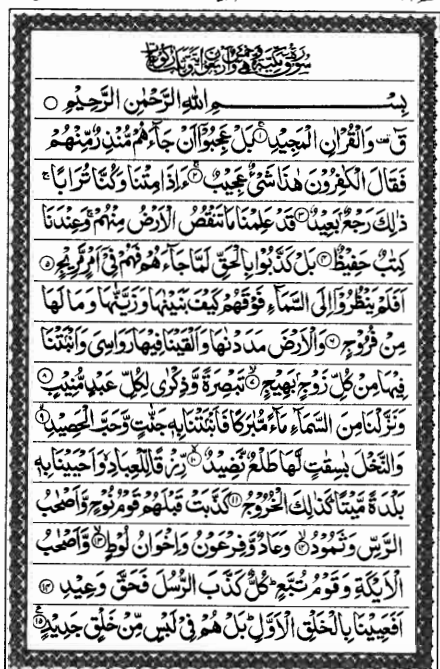 بِسْمِ اللهِ الرَّحْمٰنِ الرَّحِيْمِ
قٓ وَالْقُرْاٰنِ الْمَجِيْدِ ۝١ بَلْ عَجِبُوْٓا اَنْ جَآءَهُمْ مُّنْذِرٌ مِّنْهُمْ
فَقَالَ الْكٰفِرُوْنَ هٰذَا شَىْءٌ عَجِيْبٌ ۝٢ ءَاِذَا مِتْنَا وَكُنَّا تُرَابًا ۚ
ذٰلِكَ رَجْعٌۢ بَعِيْدٌ ۝٣ قَدْ عَلِمْنَا مَا تَنْقُصُ الْاَرْضُ مِنْهُمْ ۚ وَعِنْدَنَا
كِتٰبٌ حَفِيْظٌ ۝٤ بَلْ كَذَّبُوْا بِالْحَقِّ لَمَّا جَآءَهُمْ فَهُمْ فِىْٓ اَمْرٍ مَّرِيْجٍ ۝٥
اَفَلَمْ يَنْظُرُوْٓا اِلَى السَّمَآءِ فَوْقَهُمْ كَيْفَ بَنَيْنٰهَا وَزَيَّنّٰهَا وَمَا لَهَا
مِنْ فُرُوْجٍ ۝٦ وَالْاَرْضَ مَدَدْنٰهَا وَاَلْقَيْنَا فِيْهَا رَوَاسِىَ وَاَنْۢبَتْنَا
فِيْهَا مِنْ كُلِّ زَوْجٍۢ بَهِيْجٍ ۝٧ تَبْصِرَةً وَّذِكْرٰى لِكُلِّ عَبْدٍ مُّنِيْبٍ ۝٨
وَنَزَّلْنَا مِنَ السَّمَآءِ مَآءً مُّبٰرَكًا فَاَنْۢبَتْنَا بِهٖ جَنّٰتٍ وَّحَبَّ الْحَصِيْدِ ۝٩
وَالنَّخْلَ بٰسِقٰتٍ لَّهَا طَلْعٌ نَّضِيْدٌ ۝١٠ رِّزْقًا لِّلْعِبَادِ ۙ وَاَحْيَيْنَا بِهٖ
بَلْدَةً مَّيْتًا ؕ كَذٰلِكَ الْخُرُوْجُ ۝١١ كَذَّبَتْ قَبْلَهُمْ قَوْمُ نُوْحٍ وَّاَصْحٰبُ
الرَّسِّ وَثَمُوْدُ ۝١٢ وَعَادٌ وَّفِرْعَوْنُ وَاِخْوَانُ لُوْطٍ ۝١٣ وَّاَصْحٰبُ
الْاَيْكَةِ وَقَوْمُ تُبَّعٍ ؕ كُلٌّ كَذَّبَ الرُّسُلَ فَحَقَّ وَعِيْدِ ۝١٤
اَفَعَيِيْنَا بِالْخَلْقِ الْاَوَّلِ ؕ بَلْ هُمْ فِىْ لَبْسٍ مِّنْ خَلْقٍ جَدِيْدٍ ۝١٥